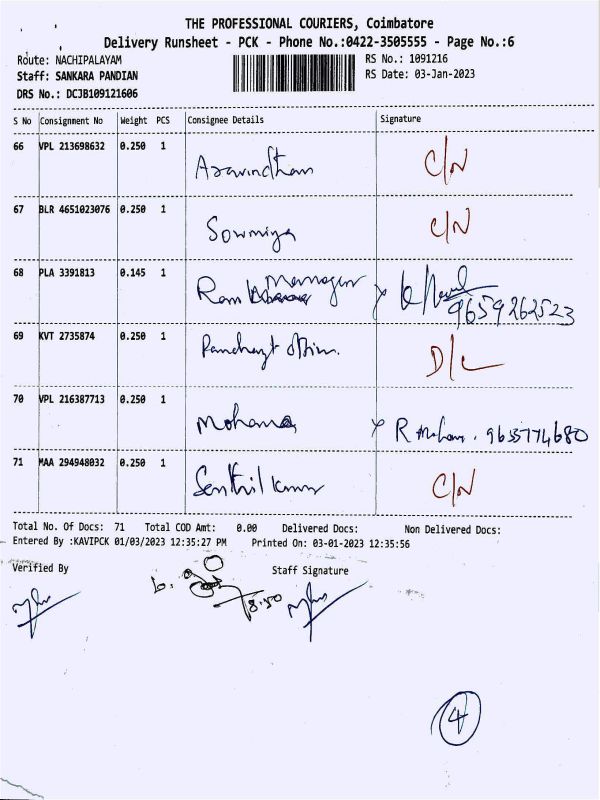 THE PROFESSIONAL COURIERS, Coimbatore
Delivery Runsheet - PCK - Phone No.:0422-3505555 - Page No.:6
Route: NACHIPALAYAM RS No.: 1091216
Staff: SANKARA PANDIAN RS Date: 03-Jan-2023
DRS No.: DCJB109121606
S No Consignment No Weight PCS Consignee Details Signature
66 VPL 213698632 0.250 1 Aravindhan C/N
67 BLR 4651023076 0.250 1 Sowmiya C/N
68 PLA 3391813 0.145 1 Ram Manager 9659262523
69 KVT 2735874 0.250 1 D/L
70 VPL 216387713 0.250 1 Mohana R Mohan. 9655774680
71 MAA 294948032 0.250 1 Senthil kumar C/N
Total No. Of Docs: 71 Total COD Amt: 0.00 Delivered Docs: Non Delivered Docs:
Entered By :KAVIPCK 01/03/2023 12:35:27 PM Printed On: 03-01-2023 12:35:56
Verified By Staff Signature
8.50
4